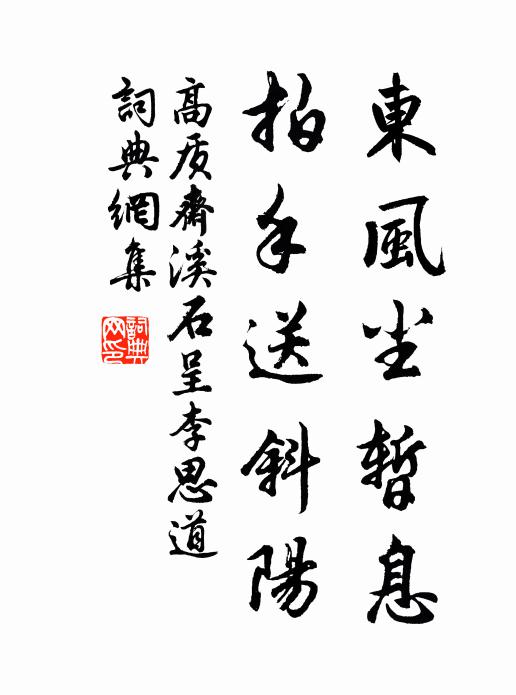 東風尘暫息
拍手送斜陽
高质齋溪石呈李思道
詞典網集
詞典
网印